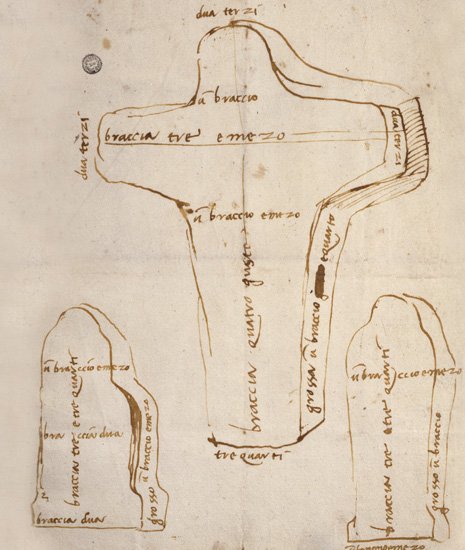 dua terzi
ū braccio
dua terzi
braccia tre e mezo
dua terzi
ū braccio e mezo
braccia quatro giuste
grossa ū braccio e quarto
tre quarti
ū braccio e mezo
braccia tre e tre quarti
braccia dua
grosso ū braccio e mezo
braccia dua
ū braccio e mezo
braccia tre e tre quarti
grosso ū braccio